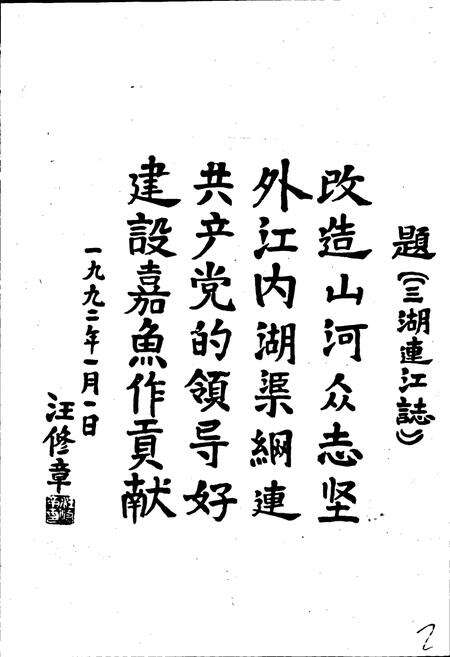 題《三湖連江誌》
改造山河众志坚
外江内湖渠綱連
共产党的領导好
建設嘉魚作貢献
一九九二年一月一日
汪修章
2